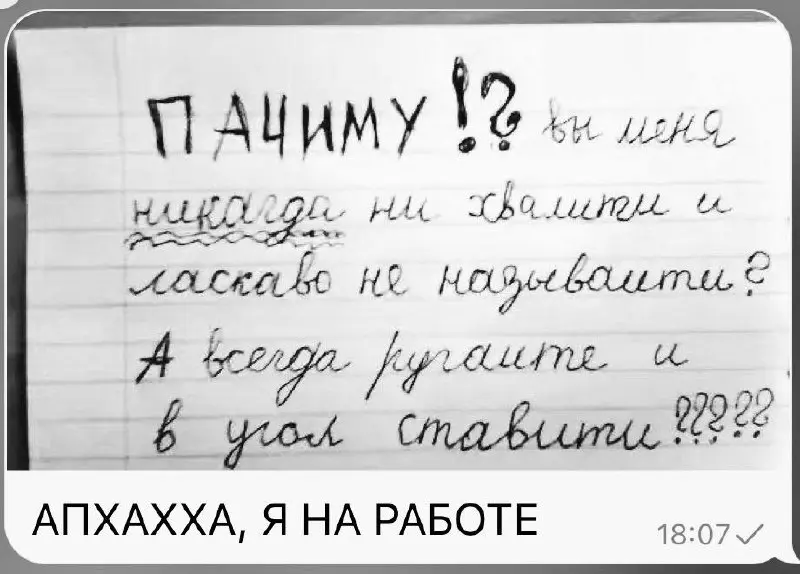 ПАЧИМУ!? вы меня
никагда ни хвалити и
ласкаво не называити?
А всегда ругаите и
в угол ставити?????
АПХАХХА, Я НА РАБОТЕ
18:07